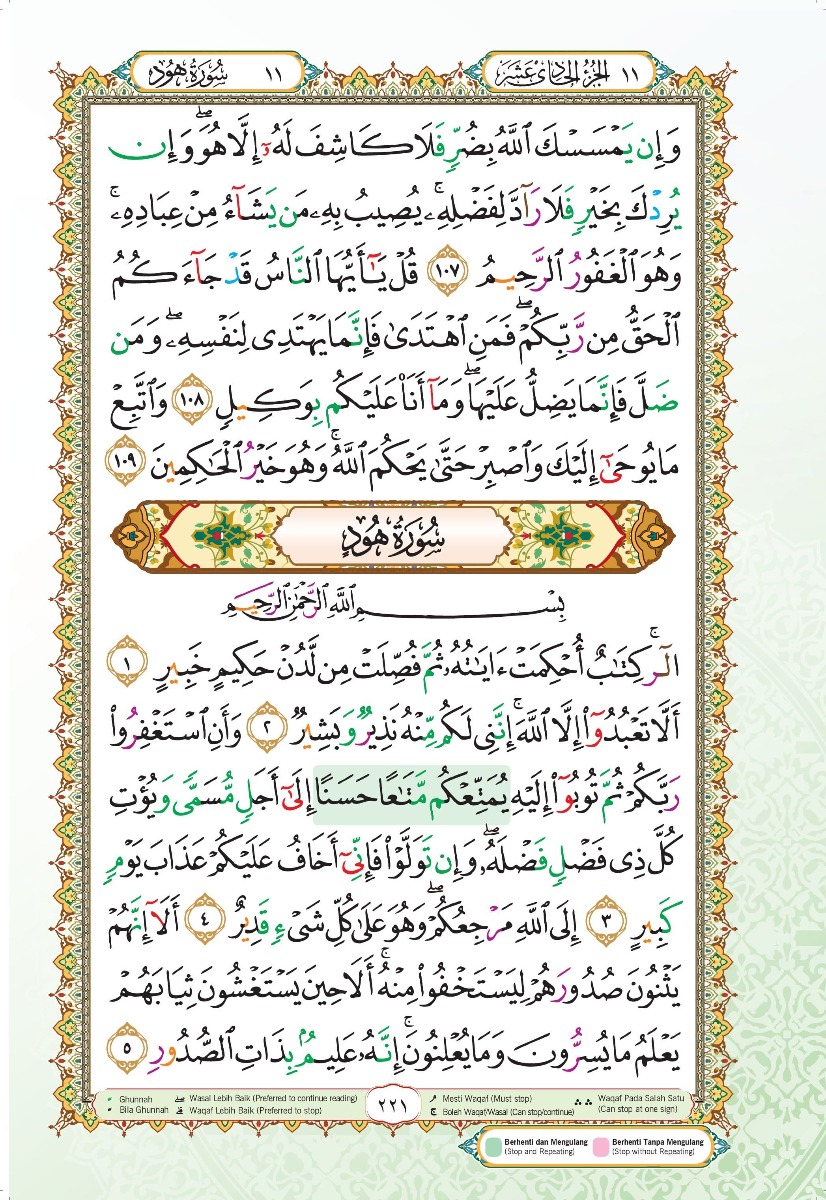 ١١ الجزء الحادي عشر
سورة هود ١١
وَإِن يَمْسَسْكَ ٱللَّهُ بِضُرٍّ فَلَا كَاشِفَ لَهُۥٓ إِلَّا هُوَ ۖ وَإِن
يُرِدْكَ بِخَيْرٍ فَلَا رَآدَّ لِفَضْلِهِۦ ۚ يُصِيبُ بِهِۦ مَن يَشَآءُ مِنْ عِبَادِهِۦ ۚ
وَهُوَ ٱلْغَفُورُ ٱلرَّحِيمُ ١٠٧ قُلْ يَـٰٓأَيُّهَا ٱلنَّاسُ قَدْ جَآءَكُمُ
ٱلْحَقُّ مِن رَّبِّكُمْ ۖ فَمَنِ ٱهْتَدَىٰ فَإِنَّمَا يَهْتَدِى لِنَفْسِهِۦ ۖ وَمَن
ضَلَّ فَإِنَّمَا يَضِلُّ عَلَيْهَا ۖ وَمَآ أَنَا۠ عَلَيْكُم بِوَكِيلٍ ١٠٨ وَٱتَّبِعْ
مَا يُوحَىٰٓ إِلَيْكَ وَٱصْبِرْ حَتَّىٰ يَحْكُمَ ٱللَّهُ ۚ وَهُوَ خَيْرُ ٱلْحَـٰكِمِينَ ١٠٩
سُورَةُ هُودٍ
بِسْمِ ٱللَّهِ ٱلرَّحْمَـٰنِ ٱلرَّحِيمِ
الٓر ۚ كِتَـٰبٌ أُحْكِمَتْ ءَايَـٰتُهُۥ ثُمَّ فُصِّلَتْ مِن لَّدُنْ حَكِيمٍ خَبِيرٍ ١
أَلَّا تَعْبُدُوٓا۟ إِلَّا ٱللَّهَ ۚ إِنَّنِى لَكُم مِّنْهُ نَذِيرٌ وَبَشِيرٌ ٢ وَأَنِ ٱسْتَغْفِرُوا۟
رَبَّكُمْ ثُمَّ تُوبُوٓا۟ إِلَيْهِ يُمَتِّعْكُم مَّتَـٰعًا حَسَنًا إِلَىٰٓ أَجَلٍ مُّسَمًّى وَيُؤْتِ
كُلَّ ذِى فَضْلٍ فَضْلَهُۥ ۖ وَإِن تَوَلَّوْا۟ فَإِنِّىٓ أَخَافُ عَلَيْكُمْ عَذَابَ يَوْمٍ
كَبِيرٍ ٣ إِلَى ٱللَّهِ مَرْجِعُكُمْ ۖ وَهُوَ عَلَىٰ كُلِّ شَىْءٍ قَدِيرٌ ٤ أَلَآ إِنَّهُمْ
يَثْنُونَ صُدُورَهُمْ لِيَسْتَخْفُوا۟ مِنْهُ ۚ أَلَا حِينَ يَسْتَغْشُونَ ثِيَابَهُمْ
يَعْلَمُ مَا يُسِرُّونَ وَمَا يُعْلِنُونَ ۚ إِنَّهُۥ عَلِيمٌۢ بِذَاتِ ٱلصُّدُورِ ٥
Ghunnah
Bila Ghunnah
ۖ Wasal Lebih Baik (Preferred to continue reading)
ۗ Waqaf Lebih Baik (Preferred to stop)
٢٢١
ۘ Mesti Waqaf (Must stop)
ۚ Boleh Waqaf/Wasal (Can stop/continue)
ۛ ۛ Waqaf Pada Salah Satu
(Can stop at one sign)
Berhenti dan Mengulang
(Stop and Repeating)
Berhenti Tanpa Mengulang
(Stop without Repeating)